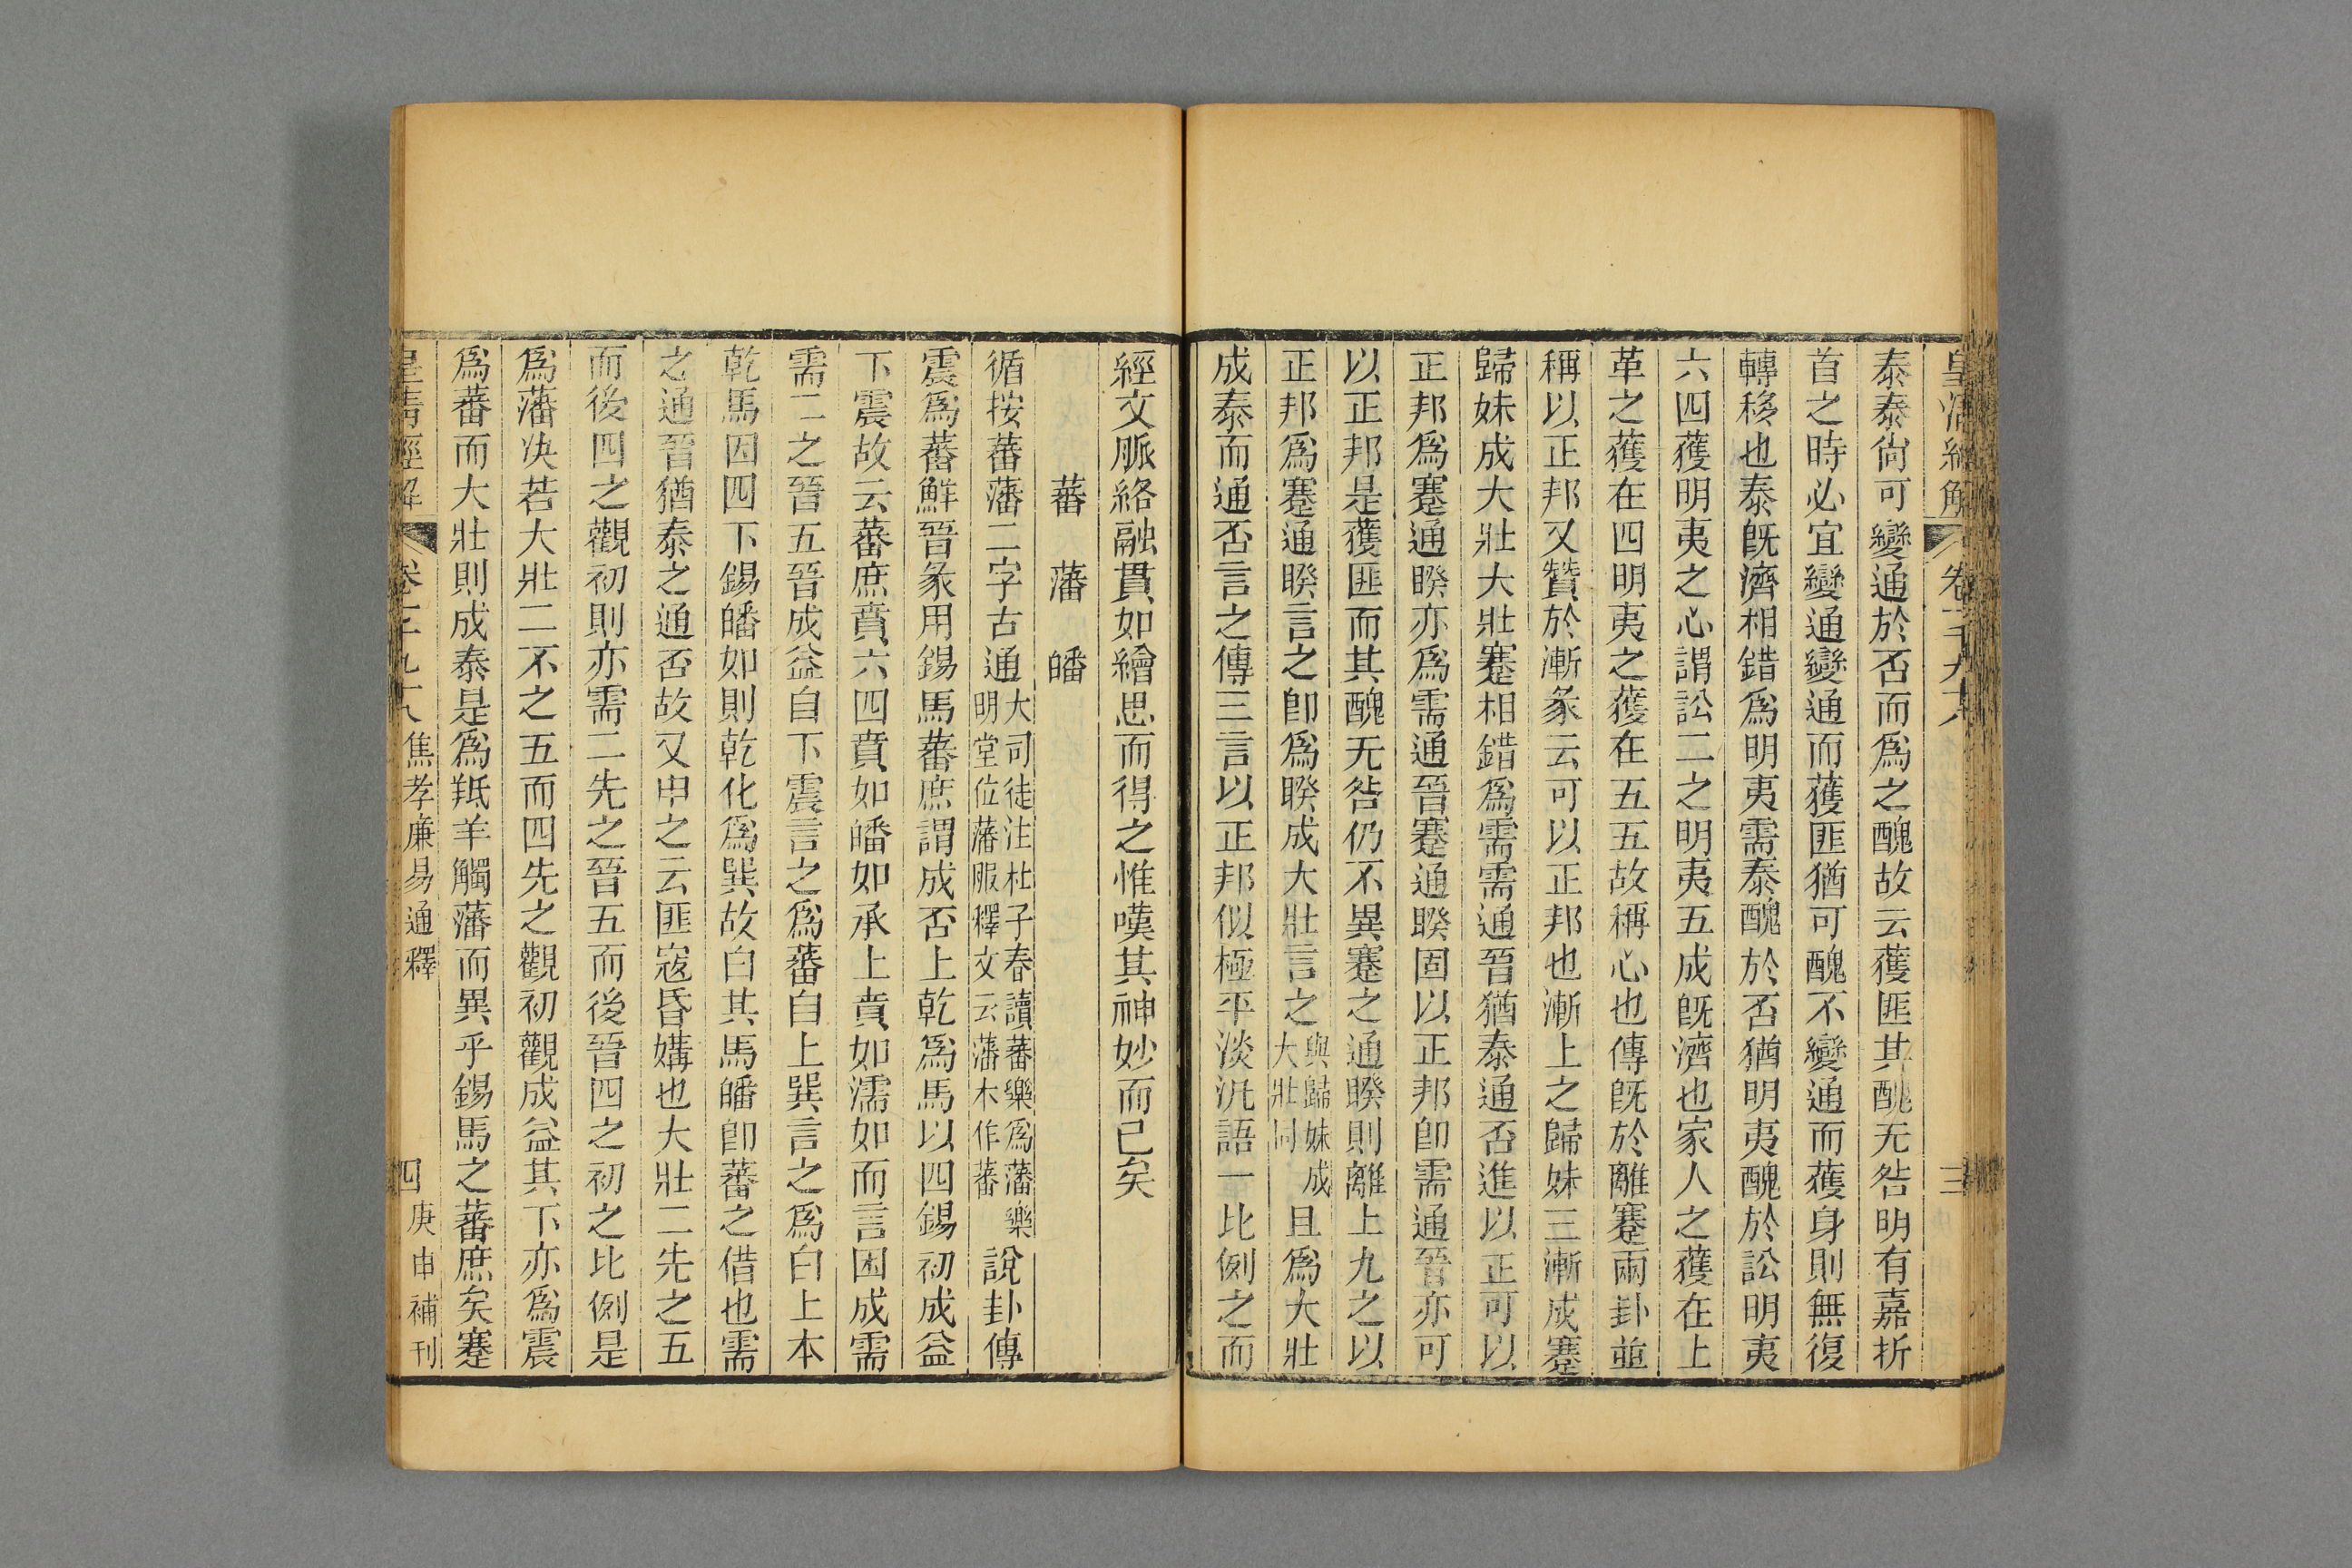 皇清經解 卷一千九十八 三
泰泰尙可變通於否而爲之醜故云獲匪其醜无咎明有嘉折
首之時必宜變通變通而獲匪猶可醜不變通而獲身則無復
轉移也泰旣濟相錯爲明夷需泰醜於否猶明夷醜於訟明夷
六四獲明夷之心謂訟二之明夷五成旣濟也家人之獲在上
革之獲在四明夷之獲在五五故稱心也傳旣於離蹇兩卦並
稱以正邦又贊於漸彖云可以正邦也漸上之歸妹三漸成蹇
歸妹成大壯大壯蹇相錯爲需需通晉猶泰通否進以正可以
正邦爲蹇通睽亦爲需通晉蹇通睽固以正邦卽需通晉亦可
以正邦是獲匪而其醜无咎仍不異蹇之通睽則離上九之以
正邦爲蹇通睽言之卽爲睽成大壯言之與歸妹成大壯同且爲大壯
成泰而通否言之傳三言以正邦似極平淡汎語一比例之而
經文脈絡融貫如繪思而得之惟嘆其神妙而已矣
蕃 藩 皤
循按蕃藩二字古通大司徒注杜子春讀蕃樂爲藩樂明堂位藩服釋文云藩本作蕃說卦傳
震爲蕃鮮晉彖用錫馬蕃庶謂成否上乾爲馬以四錫初成益
下震故云蕃庶賁六四賁如皤如承上賁如濡如而言困成需
需二之晉五晉成益自下震言之爲蕃自上巽言之爲白上本
乾馬因四下錫皤如則乾化爲巽故白其馬皤卽蕃之借也需
之通晉猶泰之通否故又申之云匪寇昏媾也大壯二先之五
而後四之觀初則亦需二先之晉五而後晉四之初之比例是
爲藩決若大壯二不之五而四先之觀初觀成益其下亦爲震
爲蕃而大壯則成泰是爲羝羊觸藩而異乎錫馬之蕃庶矣蹇
皇清經解 卷一千九十八 焦孝廉易通釋 四 庚申補刊